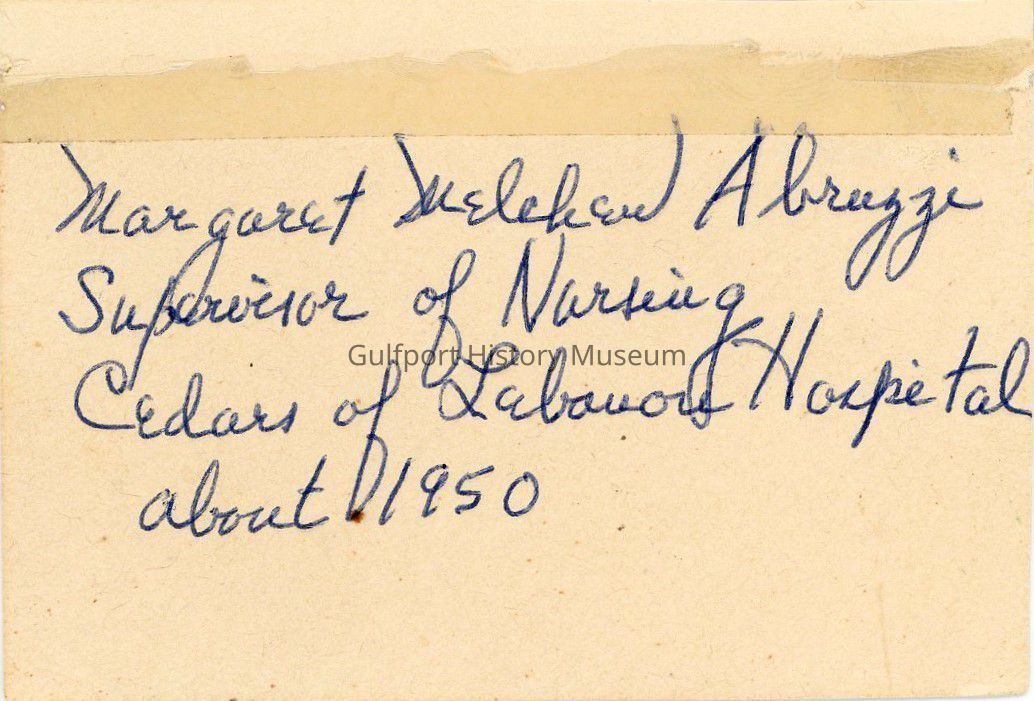 Margaret Melcher Abruzzi
Supervisor of Nursing
Gulfport History Museum
Cedars of Lebanon Hospital
about 1950